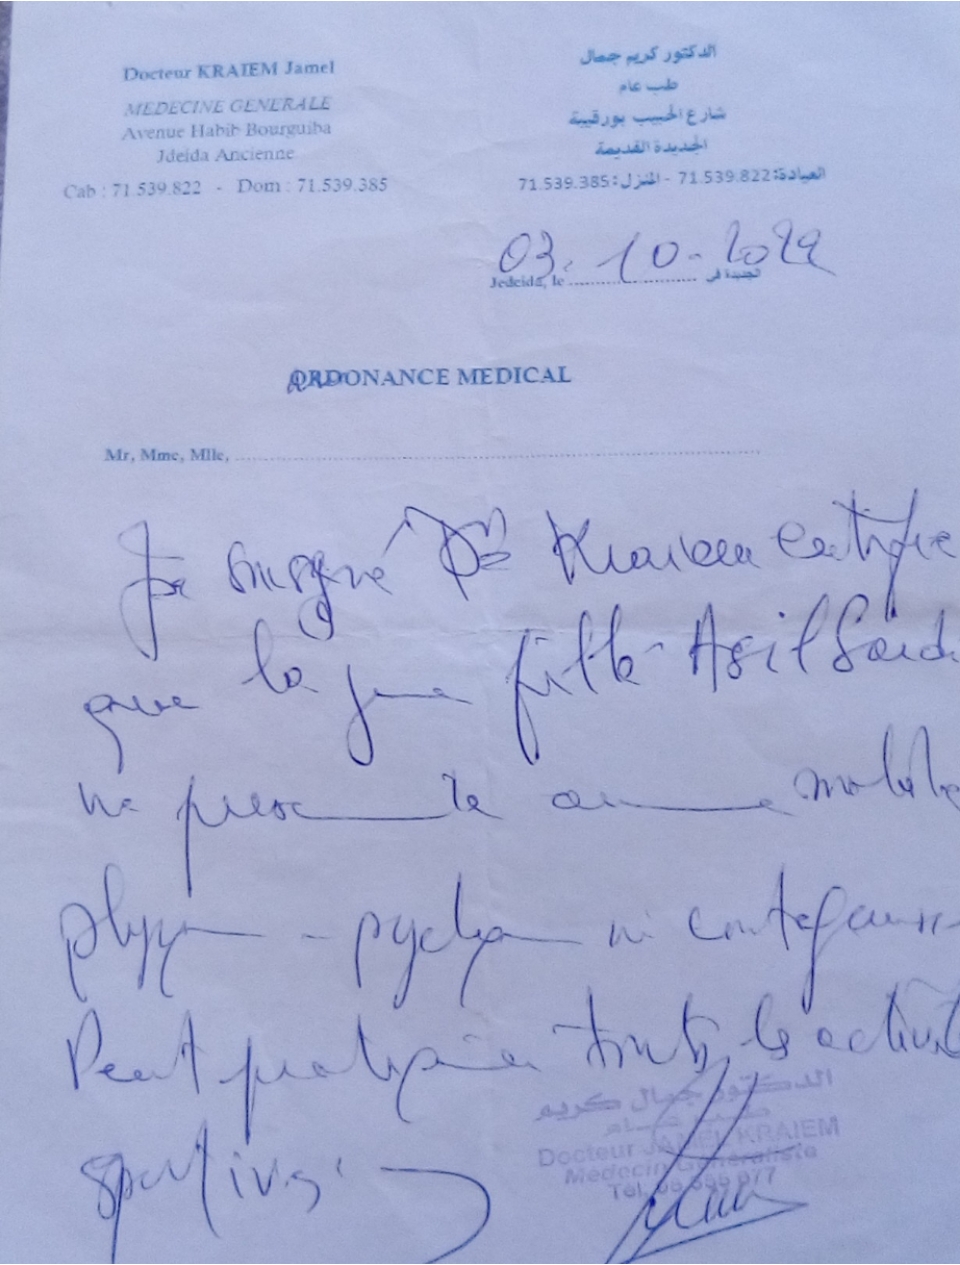 Docteur KRAIEM Jamel
MEDECINE GENERALE
Avenue Habib Bourguiba
Jdeida Ancienne
Cab : 71.539.822 - Dom : 71.539.385
الدكتور كريم جمال
طب عام
شارع الحبيب بورقيبة
الجديدة القديمة
العيادة: 71.539.822 - المنزل: 71.539.385
03. 10 - 2024
Jedeida, le ........................ الجديدة في
ORDONANCE MEDICAL
Mr, Mme, Mlle, ........................
Je Sousigné Dr Kraiem Certifie
que la jeune fille Asil Saidi
ne presente aucune maladie
physique - psychique ni contagieuse
Peut pratiquer toutes les activités
sportives.
الدكتور جمال كريم
طب عام
Docteur JAMEL KRAIEM
Médecin Généraliste